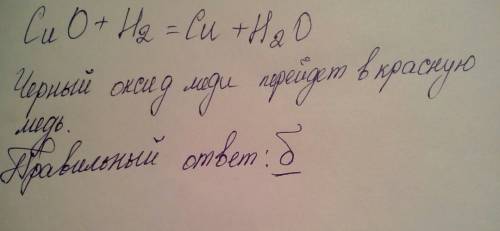 CuO + H2 = Cu + H2O
Черный оксид меди перейдет в красную
медь.
Правильный ответ: б